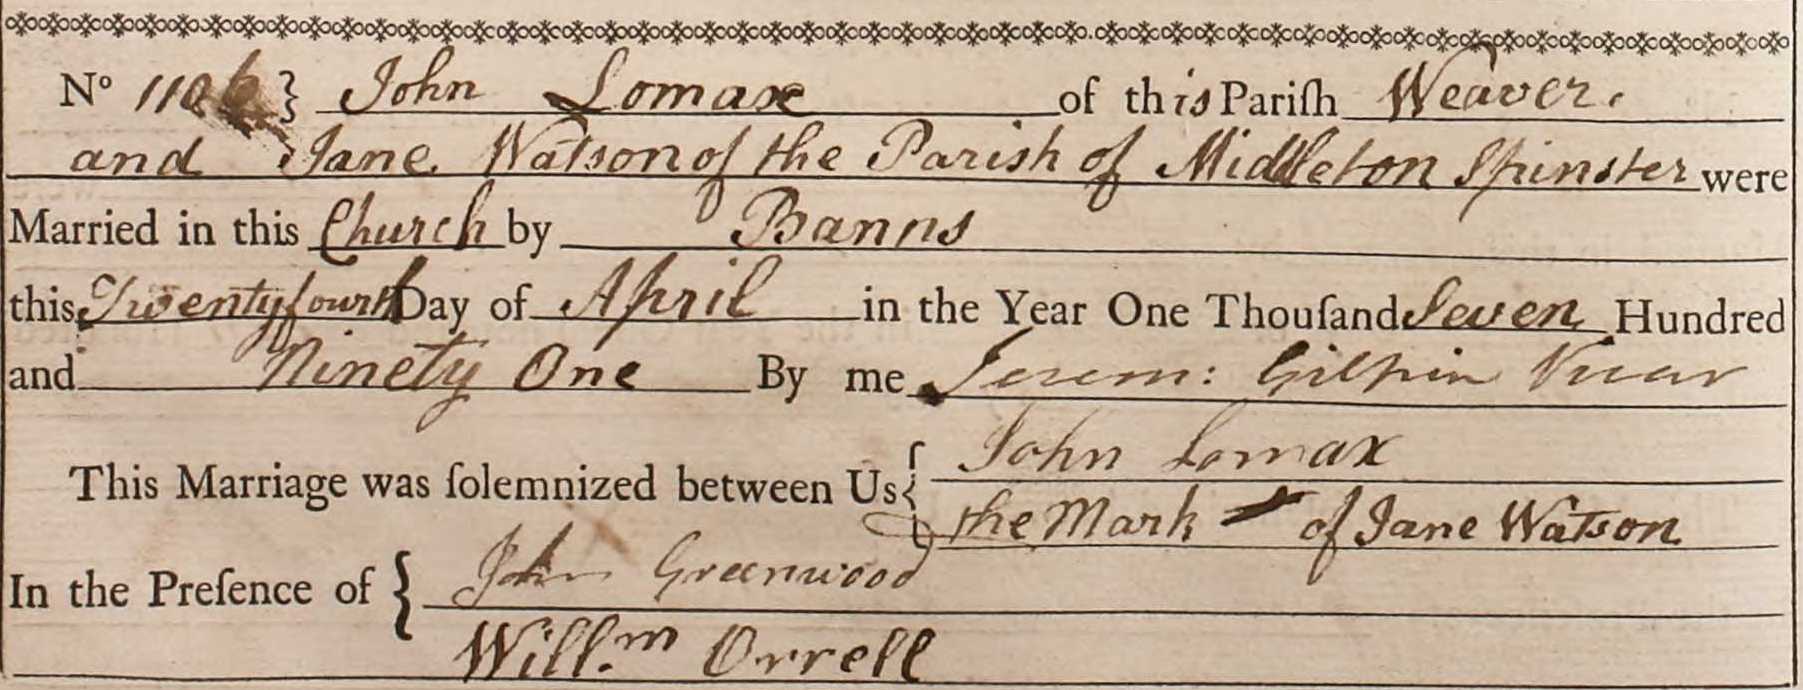 No 1106} John Lomax of this Pariſh Weaver.
and Jane Watson of the Parish of Middleton Spinster were
Married in this Church by Banns
this Twentyfourth Day of April in the Year One Thouſand Seven Hundred
and Ninety One By me Jerem: Gilpin Vicar
This Marriage was ſolemnized between Us { John Lomax
the Mark + of Jane Watson
In the Preſence of { John Greenwood
Will.m Orrell